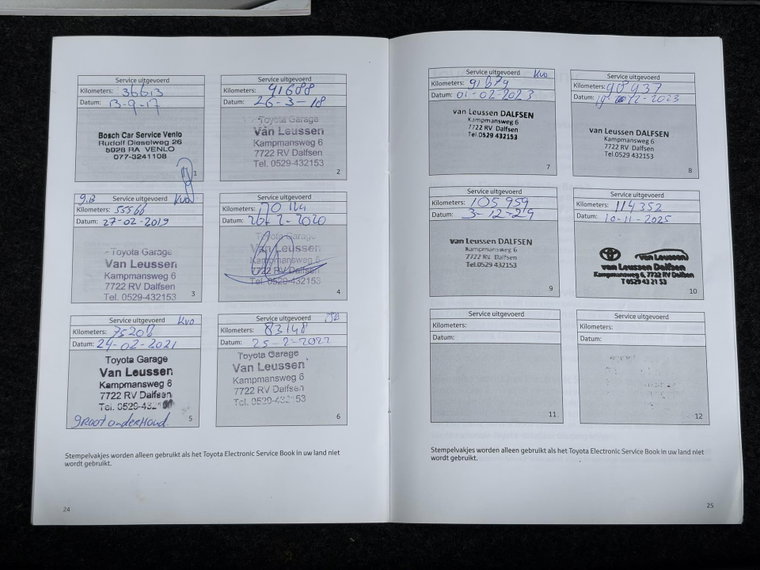 Service uitgevoerd
Kilometers: 36613
Datum: 13-9-17
Bosch Car Service Venlo
Rudolf Dieselweg 26
5928 RA VENLO
077-3241108
1
Service uitgevoerd
Kilometers: 41688
Datum: 26-3-18
Toyota Garage
Van Leussen
Kampmansweg 6
7722 RV Dalfsen
Tel. 0529-432153
2
Service uitgevoerd
Kilometers: 55566
Datum: 27-02-2019
Toyota Garage
Van Leussen
Kampmansweg 6
7722 RV Dalfsen
Tel. 0529-432153
3
Service uitgevoerd
Kilometers:
Datum: 26-2-2020
Toyota Garage
Van Leussen
Kampmansweg 6
7722 RV Dalfsen
Tel. 0529-432153
4
Service uitgevoerd Kvo
Kilometers: 75208
Datum: 24-02-2021
Toyota Garage
Van Leussen
Kampmansweg 6
7722 RV Dalfsen
Tel. 0529-432
groot onderhoud
5
Service uitgevoerd
Kilometers: 83148
Datum: 25-2-2022
Toyota Garage
Van Leussen
Kampmansweg 6
7722 RV Dalfsen
Tel. 0529-432153
6
Stempelvakjes worden alleen gebruikt als het Toyota Electronic Service Book in uw land niet
wordt gebruikt.
24
Service uitgevoerd Kvo
Kilometers: 91679
Datum: 01-02-2023
van Leussen DALFSEN
Kampmansweg 6
7722 RV Dalfsen
tel 0529 432153
7
Service uitgevoerd
Kilometers: 98937
Datum: 12-2023
van Leussen DALFSEN
Kampmansweg 6
7722 RV Dalfsen
tel 0529 432153
8
Service uitgevoerd
Kilometers: 105959
Datum: 3-12-24
van Leussen DALFSEN
Kampmansweg 6
7722 RV Dalfsen
tel 0529 432153
9
Service uitgevoerd
Kilometers: 114352
Datum: 10-11-2025
van Leussen
van Leussen Dalfsen
Kampmansweg 6, 7722 RV Dalfsen
T 0529 43 21 53
10
Service uitgevoerd
Kilometers:
Datum:
11
Service uitgevoerd
Kilometers:
Datum:
12
Stempelvakjes worden alleen gebruikt als het Toyota Electronic Service Book in uw land niet
wordt gebruikt.
25